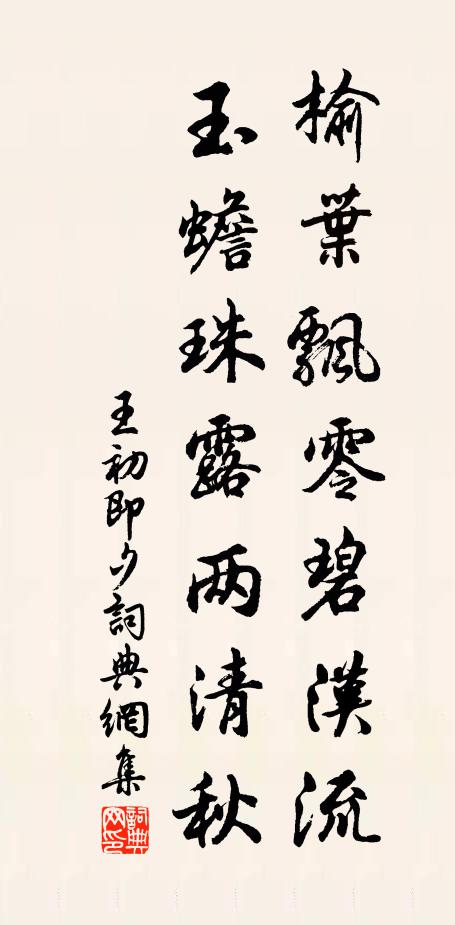 榆葉飄零碧漢流
玉蟾珠露两清秋
王初即夕詞典網集
詞典網印